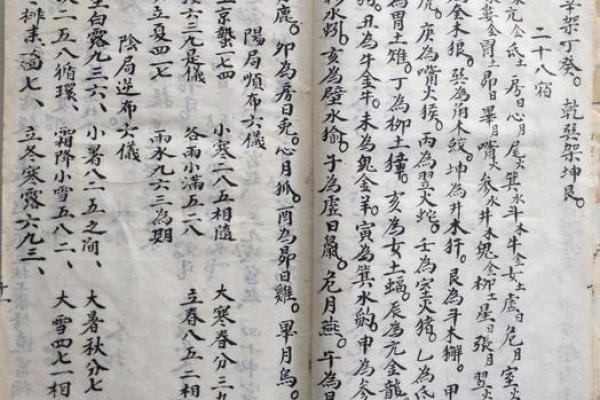 辛架丁癸。 乾巽架坤艮。
二十八宿
亢金氐土房日心月尾火箕水斗木牛金女土虛日危月室火
婁金胃土昴日畢月嘴火參水井木鬼金柳土星日張月翌火
金木狼。巽為角木蛟。坤為井木犴。艮為斗木獬。甲
虎。庚為嘴火猴。丙為翌火蛇。壬為室火猪。乙為氐
為胃土雉。丁為柳土獐。亥為女土蝠。辰為亢金龍
狗。丑為牛金牛。未為鬼金羊。寅為箕水豹。申為參
水蚓。亥為壁水㺄。子為虛日鼠。危月燕。午為日
鹿。卯為房日兔。心月狐。酉為昴日雞。畢月烏。
陽局順布六儀
至京蟄一七四 小寒二八五相隨 大寒春分三九
後六三九是儀 谷雨小滿五二八 立春八五二相
立夏四一七 雨水九六三為期
陰局逆布六儀
至白露九三六、 小暑八二五之间、 大暑秋分七
次一五八循環、 霜降小雪五八二、 大雪四七一相
排來一四七、 立冬寒露六九三、